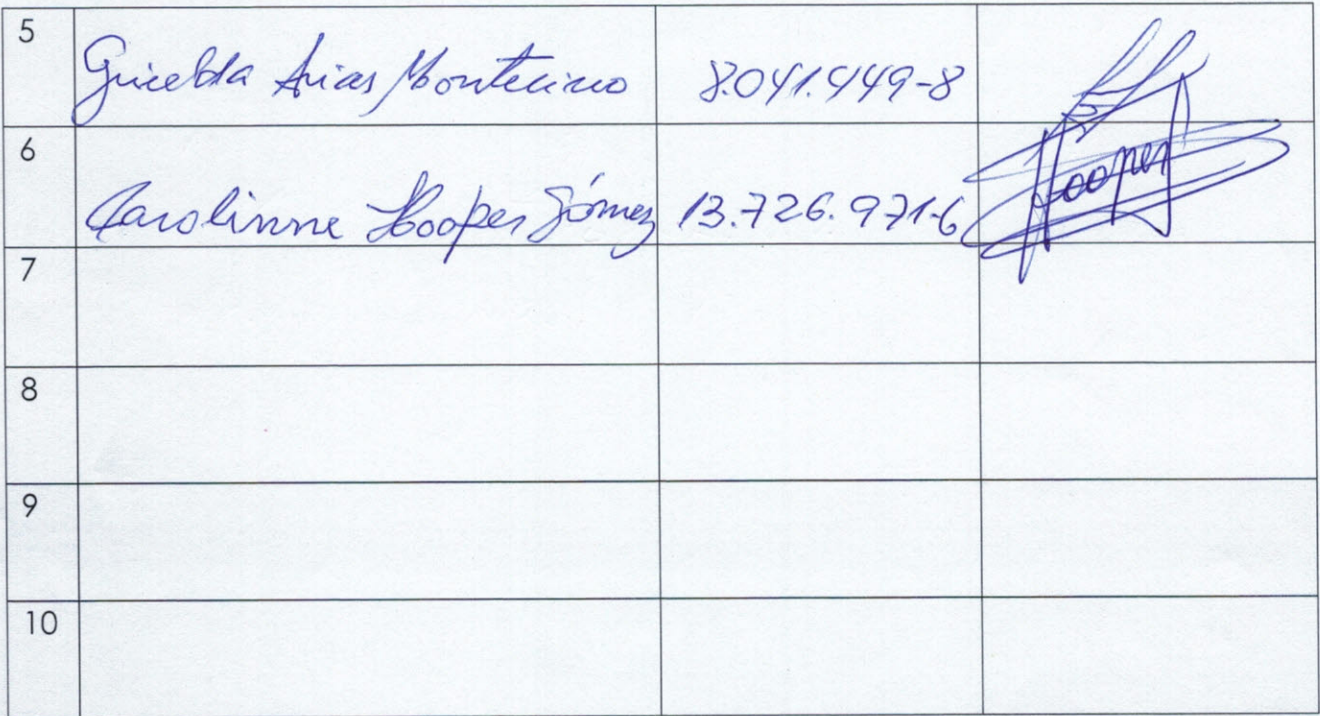 5 Gricelda Arias Montecino 8.041.449-8
6 Carolinne Hooper Gómez 13.726.971-6 Hooper
7
8
9
10